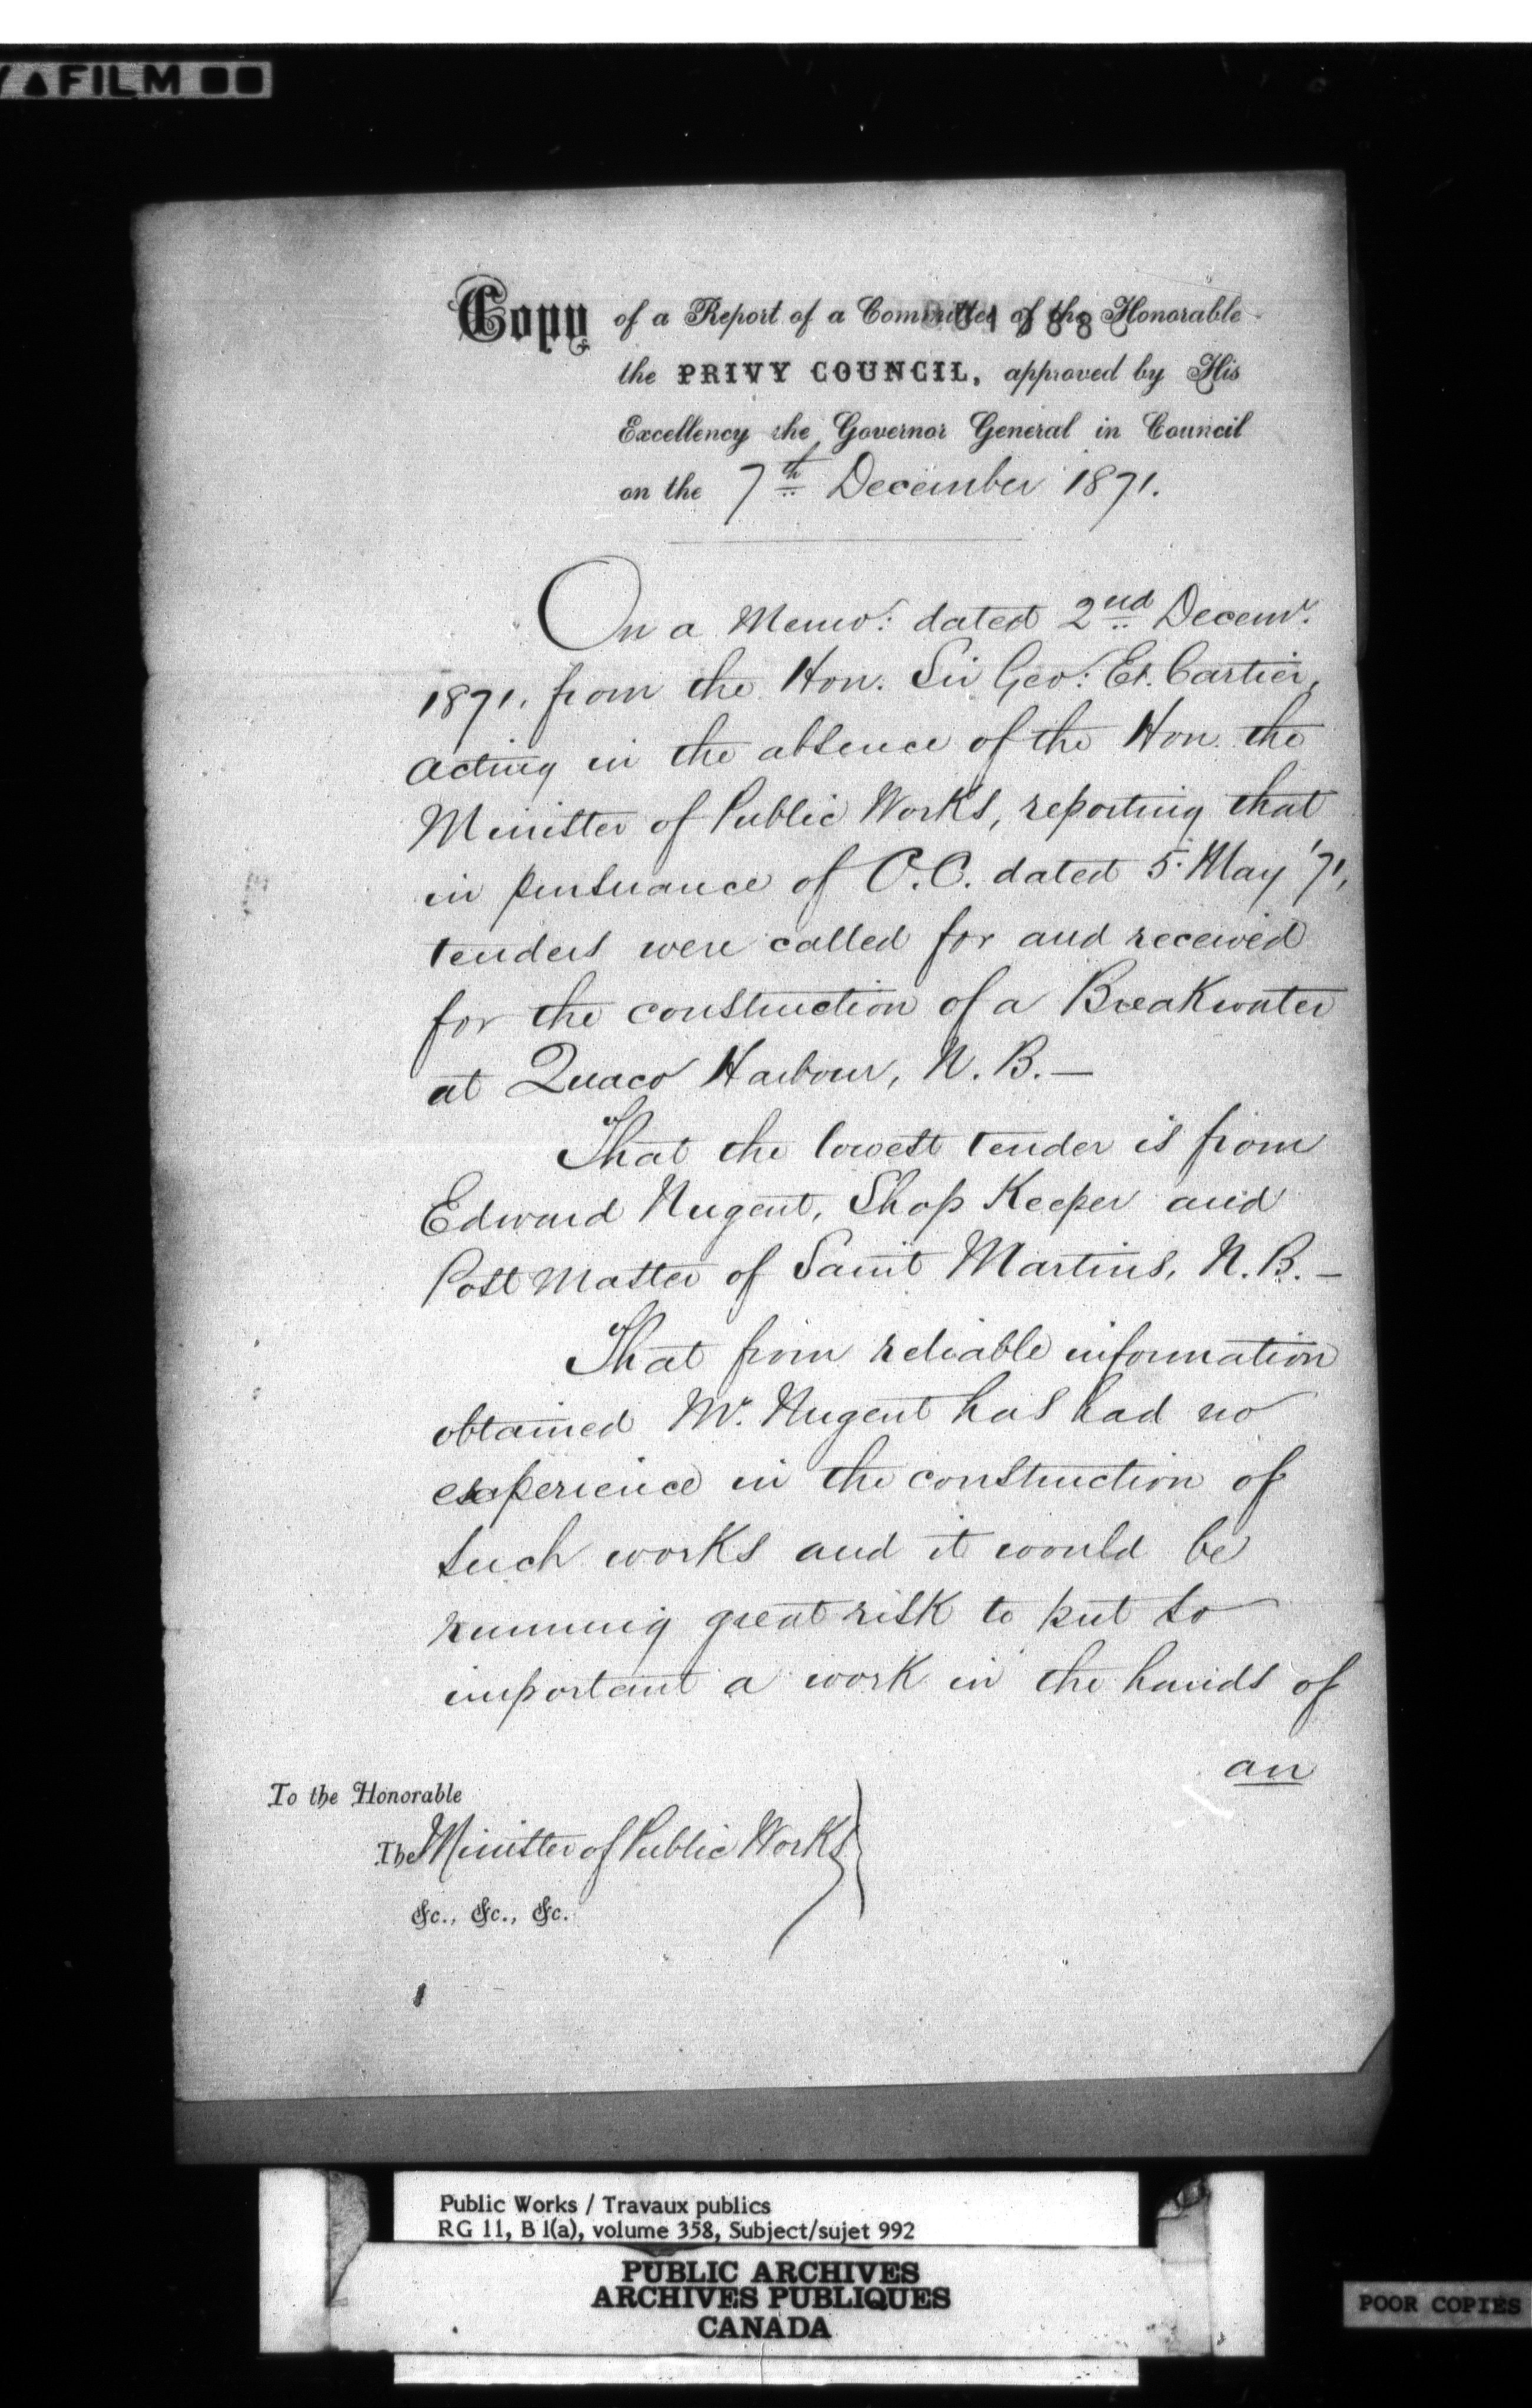 FILM
Copy of a Report of a Committee of the Honorable
the PRIVY COUNCIL, approved by His
Excellency the Governor General in Council
on the 7th December 1871.
On a Memo: dated 2nd Decemr.
1871, from the Hon. Sir Geo: Et. Cartier,
acting in the absence of the Hon. the
Minister of Public Works, reporting that
in pursuance of O.C. dated 5. May '71,
tenders were called for and received
for the construction of a Breakwater
at Quaco Harbour, N. B. —
That the lowest tender is from
Edward Nugent, Shop Keeper and
Post Master of Saint Martins, N. B. —
That from reliable information
obtained Mr. Nugent has had no
experience in the construction of
such works and it would be
running great risk to put so
important a work in the hands of
an
To the Honorable
The Minister of Public Works
&c., &c., &c.
Public Works / Travaux publics
RG 11, B 1(a), volume 358, Subject/sujet 992
PUBLIC ARCHIVES
ARCHIVES PUBLIQUES
CANADA
POOR COPIES